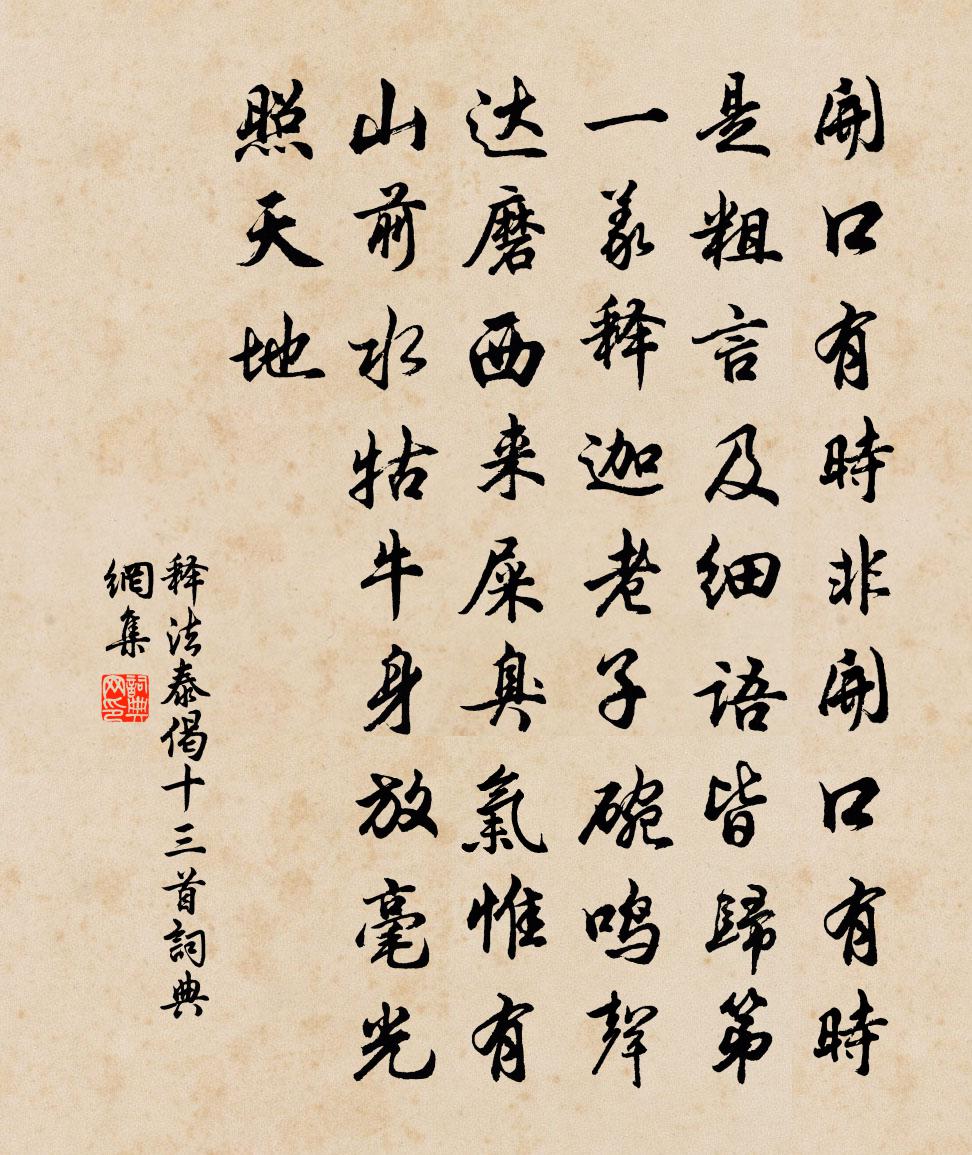 開口有時非開口有時
是粗言及細語皆歸第
一義释迦老子碗鳴聲
达磨西来屎臭氣惟有
山前水牯牛身放毫光
照天地
释法泰偈十三首詞典
網集
詞典
网印